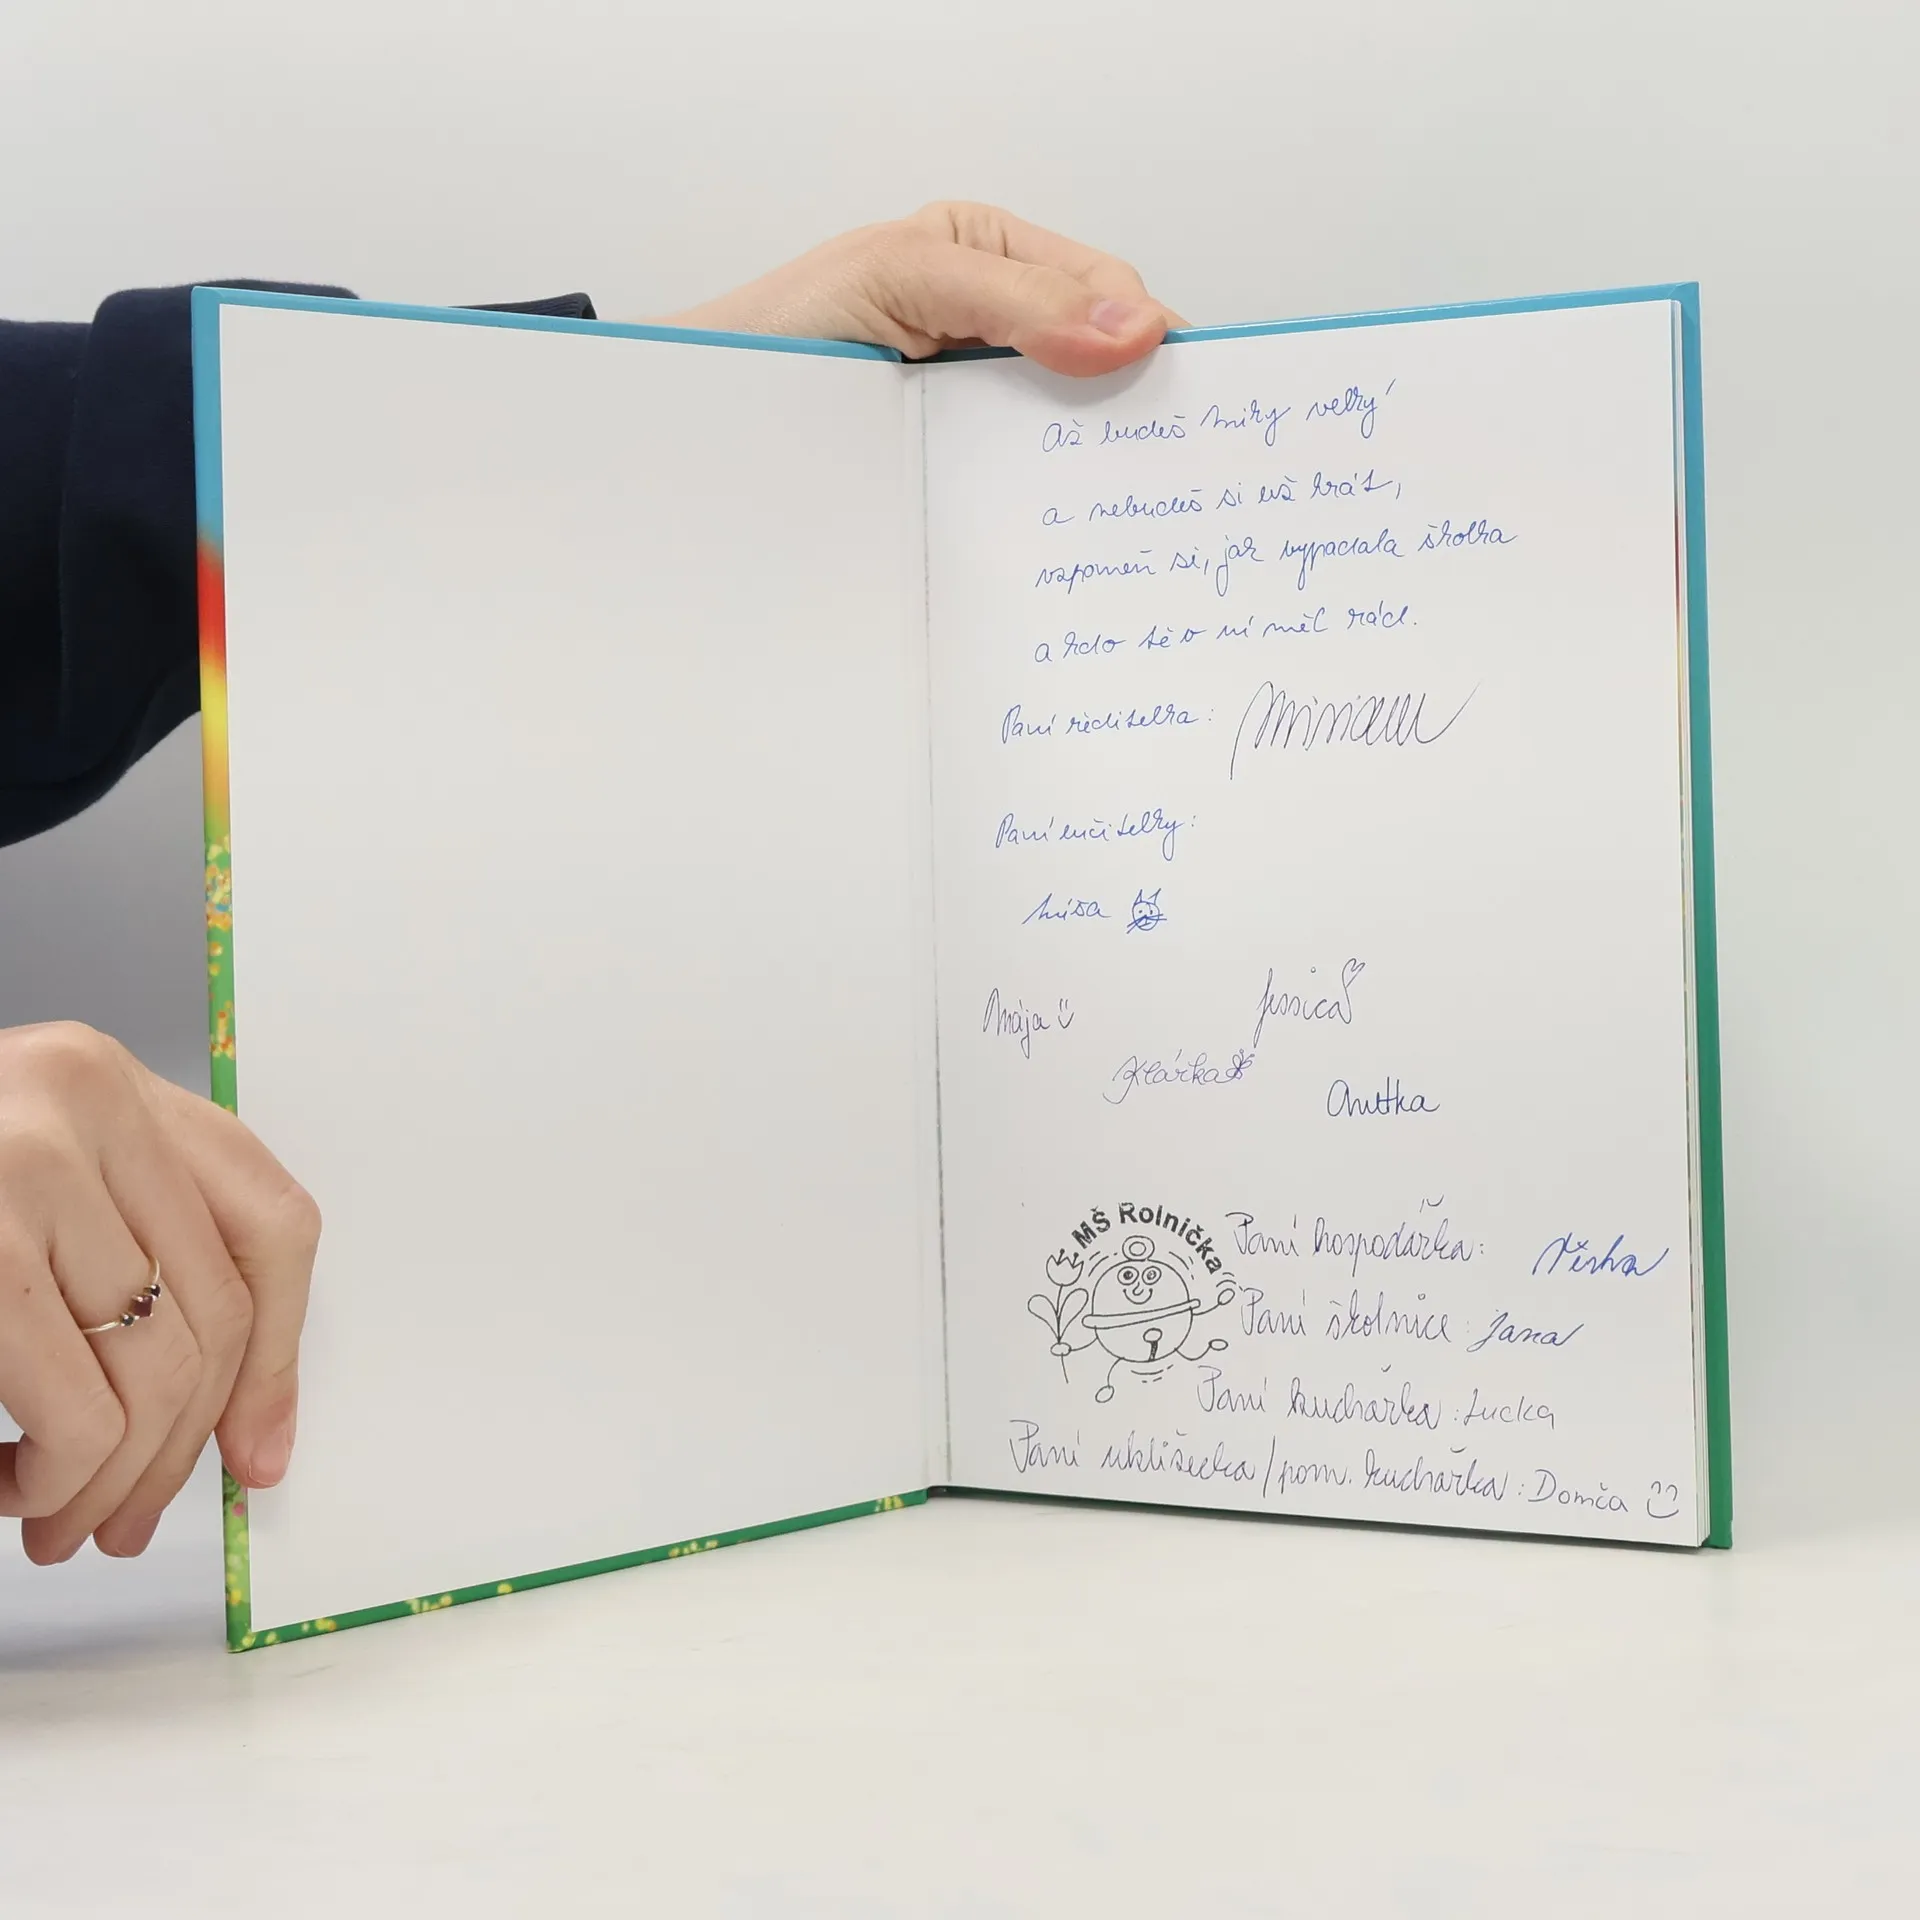 Až budeš Miky velký
a nebudeš si už hrát,
vzpomeň si, jak vypadala školka
a kdo tě v ní měl rád.
Paní ředitelka: Miriam
Paní učitelky:
Míša
Mája Jessica
Klárka
Anettka
MŠ Rolnička
Paní hospodářka:
Paní školnice: Jana
Paní kuchařka: Lucka
Paní uklízečka/pom. kuchařka: Domča